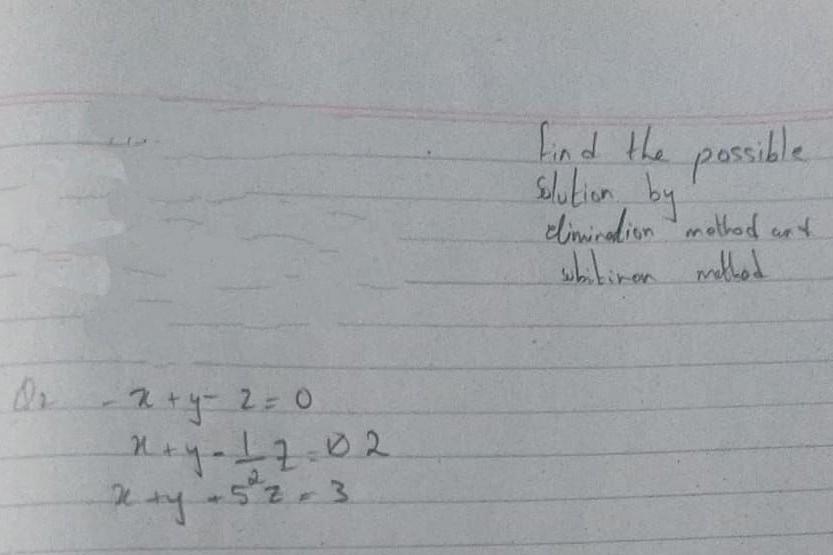 find the possible
solution by
elimination method and
method
Q2 -x+y-z=0
x+y-1/2 z=2
x+y+5z=3